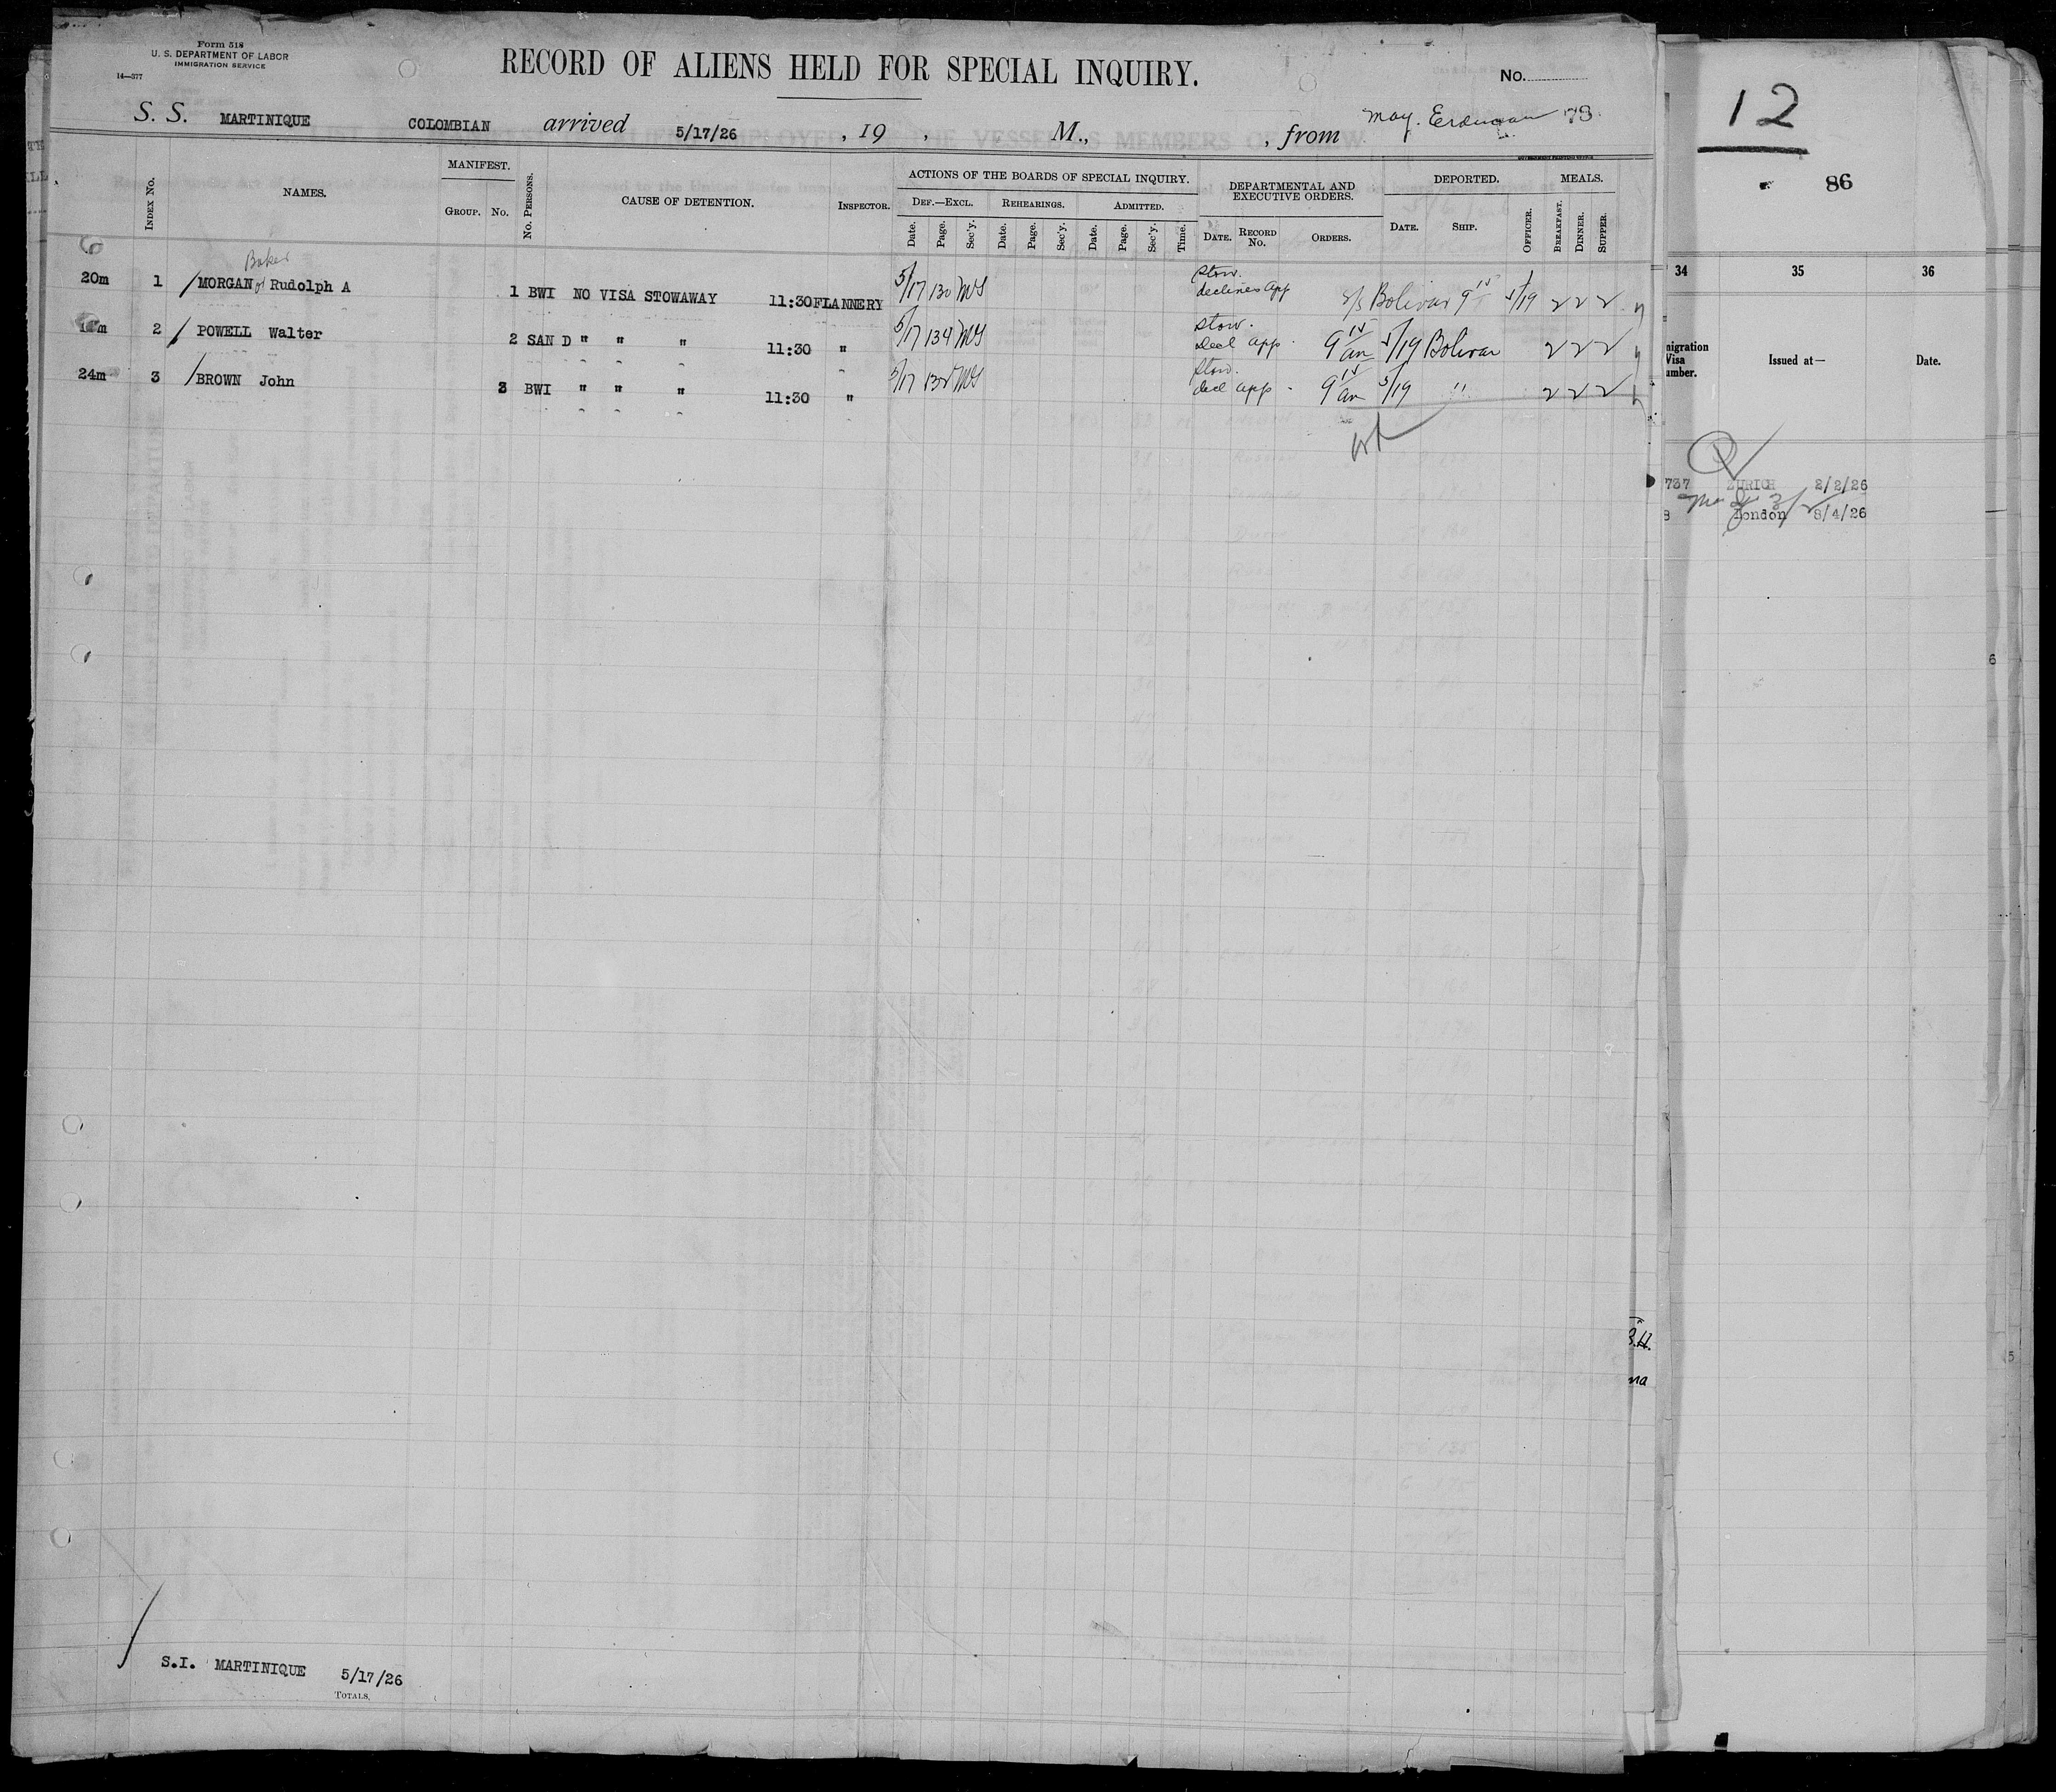 Form 518
U. S. DEPARTMENT OF LABOR
IMMIGRATION SERVICE
14—377
RECORD OF ALIENS HELD FOR SPECIAL INQUIRY.
No.
S. S. MARTINIQUE COLOMBIAN arrived 5/17/26 , 19 , M., , from
73
GOVERNMENT PRINTING OFFICE
INDEX No. NAMES. MANIFEST. GROUP. No. No. PERSONS. CAUSE OF DETENTION. INSPECTOR.
ACTIONS OF THE BOARDS OF SPECIAL INQUIRY.
DEF.—EXCL. REHEARINGS. ADMITTED.
Date. Page. Sec'y. Date. Page. Sec'y. Date. Page. Sec'y. Time.
DEPARTMENTAL AND EXECUTIVE ORDERS.
DATE. RECORD No. ORDERS.
DEPORTED.
DATE. SHIP. OFFICER.
MEALS.
BREAKFAST. DINNER. SUPPER.
6
Baker
20m 1 / MORGAN or Rudolph A 1 BWI NO VISA STOWAWAY 11:30 FLANNERY 5/17 130 MS Stow. declines app S/S Bolivar 9 15 5/19 2 2 2
2 / POWELL Walter 2 SAN D " " " 11:30 " 5/17 134 MS Stow. Decl app. 9 15 am 5/19 Bolivar 2 2 2
24m 3 / BROWN John 3 BWI " " " 11:30 " 5/17 132 MS Stow. decl app - 9 15 am 5/19 " 2 2 2
S.I. MARTINIQUE 5/17/26
TOTALS.
12
86
34 35 36
migration
Visa
umber.
Issued at—
Date.
737 ZURICH 2/2/26
8 London 8/4/26
6
5
B.H.
na